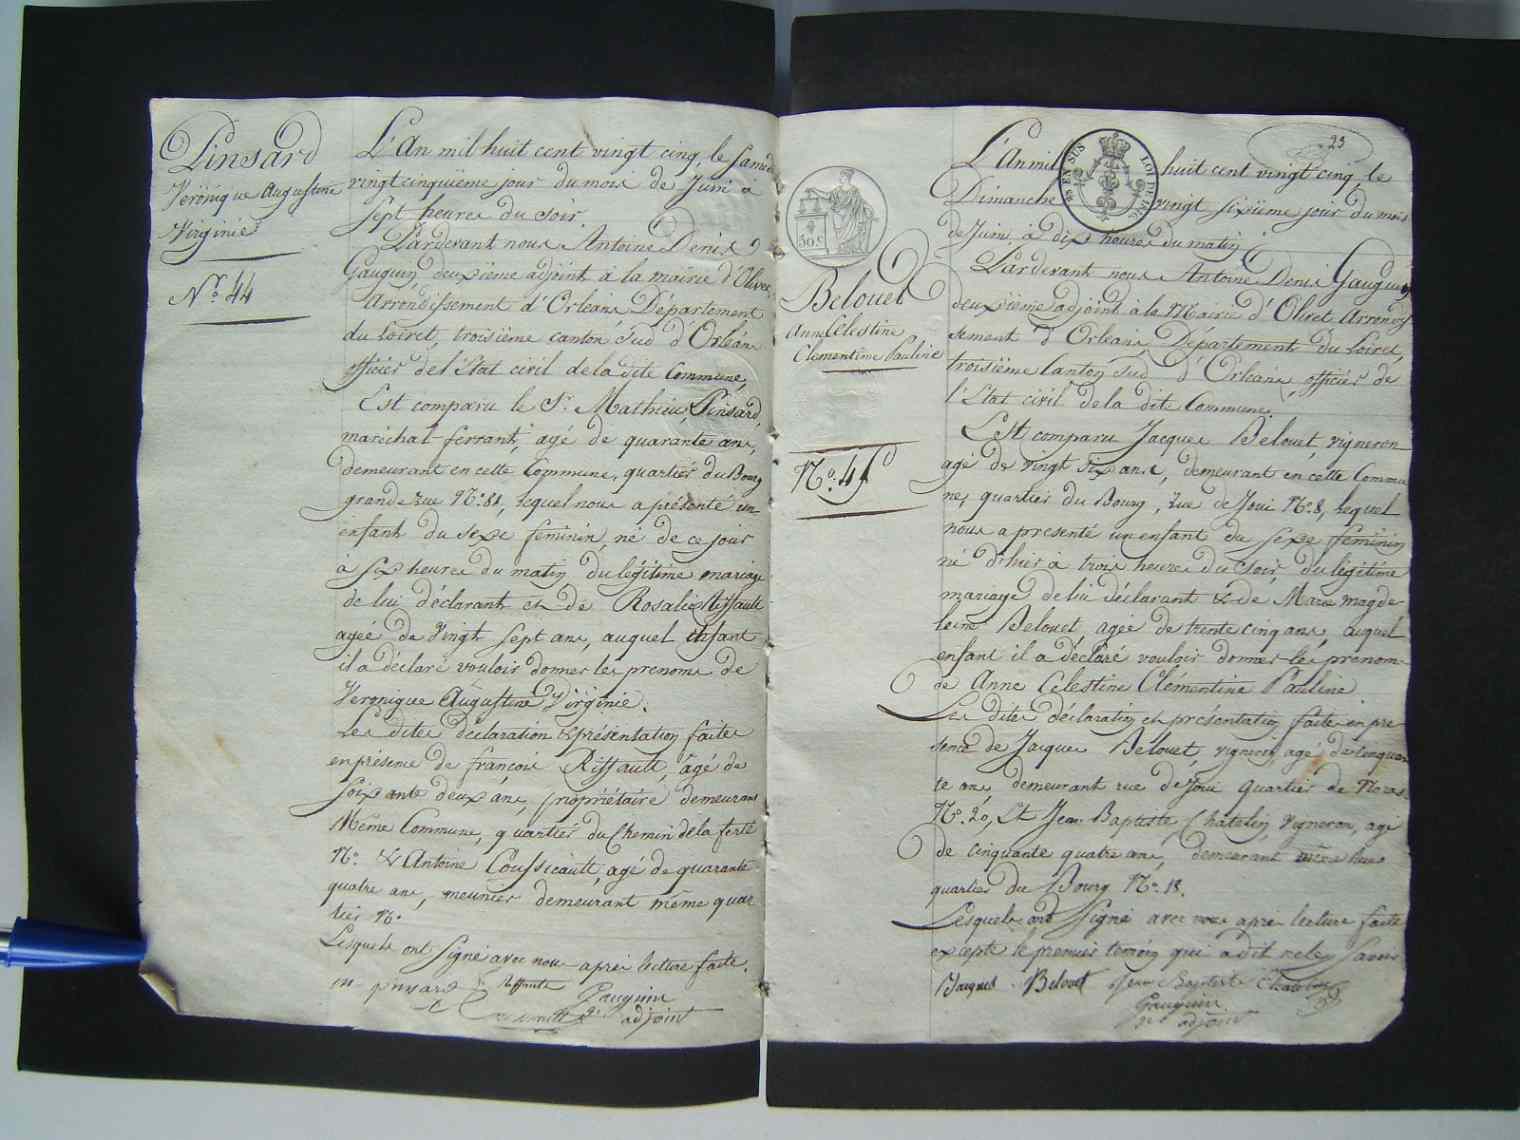 Pinsard
Véronique Augustine
Virginie
N.o 44
L'An mil huit cent vingt cinq, le samedi
vingt cinquiême jour du mois de Juin à
sept heures du soir
Pardevant nous Antoine Denis
Gauguin, deuxiême adjoint à la mairie d'Olivet,
Arrondissement d'Orleans Département
du Loiret, troisiême canton sud d'Orléans
officier de l'Etat civil de la dite Commune,
Est comparu le Sr. Mathieu Pinsard,
maréchal-ferrant, agé de quarante ans,
demeurant en cette Commune, quartier du Bourg
grande rue N.o 81, lequel nous a présenté un
enfant du sexe féminin, né de ce jour
à six heures du matin du légitime mariage
de lui déclarant et de Rosalie Riffault
agée de vingt sept ans, auquel enfant
il a déclaré vouloir donner les prenoms de
Veronique Augustine Virginie.
Les dites déclaration & présentation faites
en présence de françois Riffault, âgé de
soixante deux ans, propriétaire demeurant
Même Commune, quartier du Chemin de la ferté
N.o & Antoine Coussicault, agé de quarante
quatre ans, meunier demeurant même quar
tier N.o
Lesquels ont signé avec nous après lecture faite.
m pinsard f. Riffault
Gauguin
adjoint
23
L'An mil huit cent vingt cinq le
Dimanche vingt sixiême jour du mois
de Juin à dix heures du matin
30 C
Belouet
Anne Celestine
Clementine Pauline
N.o 45
Pardevant nous Antoine Denis Gauguin
deuxiême adjoint à la Mairie d'Olivet Arrondis
sement d'Orleans Département du Loiret,
troisiême canton sud d'Orléans, officier de
l'Etat civil de la dite Commune.
Est comparu Jacques Belouet, vigneron
agé de vingt six ans, demeurant en cette Commu
ne, quartier du Bourg, rue de Joui N.o 8, lequel
nous a presenté un enfant du sexe féminin
né d'hier à trois heures du soir, du légitime
mariage de lui déclarant & de Marie magde
leine Belouet agée de trente cinq ans, auquel
enfant il a déclaré vouloir donner les prenoms
de Anne Celestine Clémentine Pauline
Les dites déclaration et présentation faites en pre
sence de Jacques Belouet, vigneron, agé de cinquan
te ans demeurant rue de Joui quartier de
N.o 20, Et Jean Baptiste Chatelin vigneron, agé
de cinquante quatre ans, demeurant même rue
quartier du Bourg N.o 18.
Lesquels ont signé avec nous après lecture faite
excepté le premier témoin qui a dit ne le savoir
Jacques Belouet Jean Baptiste Chatelin
Gauguin
adjoint